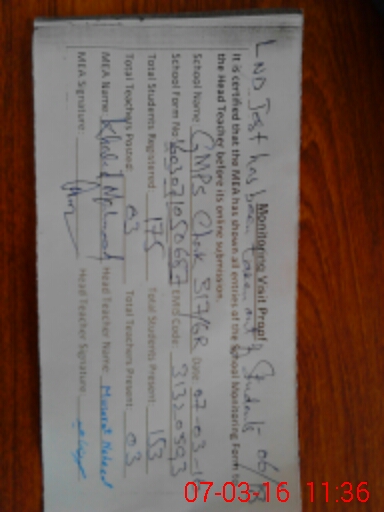 LND Test has been taken out of Students 06/
Monitoring Visit Proof
It is certified that the MEA has shown all entries of the School Monitoring Form to
the Head Teacher before its online submission.
School Name: GMPS Chak 317/6R Date: 07-03-16
School Form No EMIS Code: 31320593
Total Students Registered 175 Total Students Present 153
Total Teachers Posted: 03 Total Teachers Present: 03
MEA Name: Khalid Mahmood Head Teacher Name:
MEA Signature: Head Teacher Signature:
07-03-16 11:36